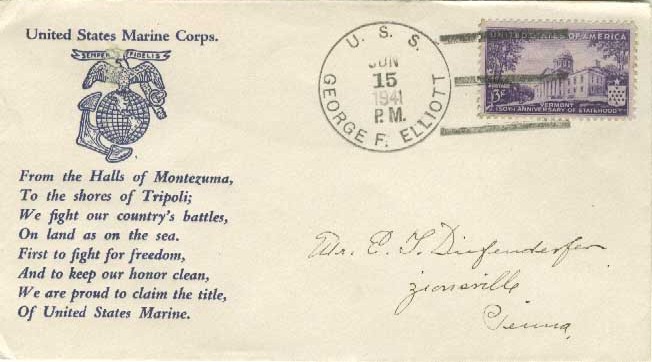 United States Marine Corps.
SEMPER FIDELIS
From the Halls of Montezuma,
To the shores of Tripoli;
We fight our country's battles,
On land as on the sea.
First to fight for freedom,
And to keep our honor clean,
We are proud to claim the title,
Of United States Marine.
U. S. S.
JUN
15
1941
P.M.
GEORGE F. ELLIOTT
UNITED STATES OF AMERICA
POSTAGE
3¢
VERMONT
150TH ANNIVERSARY OF STATEHOOD
Mr. C. F. Diefenderfer
Zionsville
Penna,